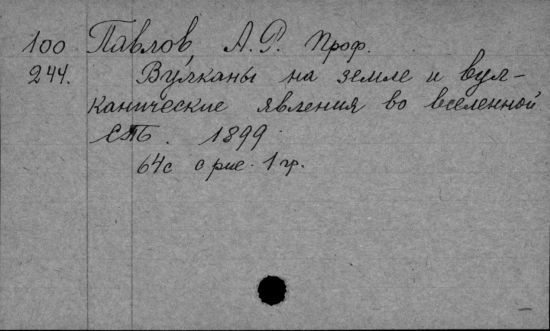 100 Павлов, А. Р. Проф.
244. Вулканы на земле и вул-
канические явления во вселенной
СПб. 1899.
64с с рис. 1 гр.